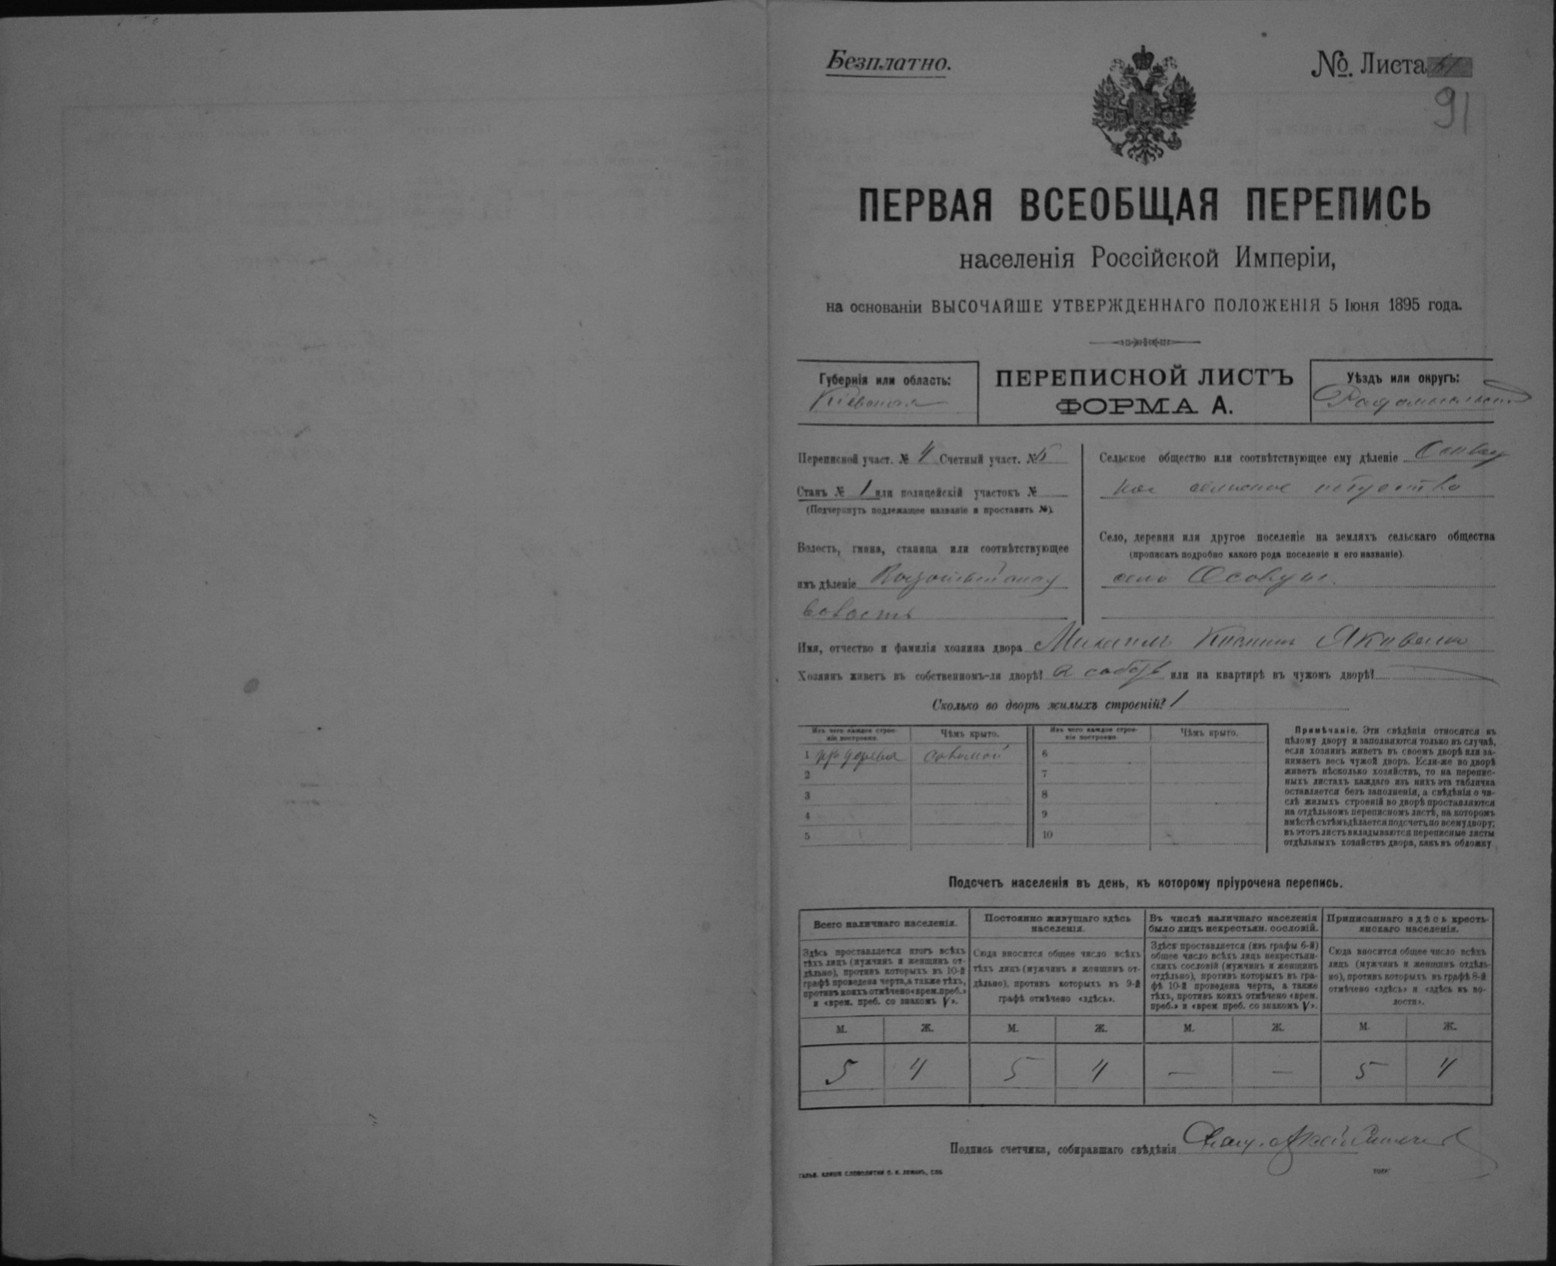 Безплатно.
№. Листа
91
ПЕРВАЯ ВСЕОБЩАЯ ПЕРЕПИСЬ
населенія Россійской Имперіи,
на основаніи ВЫСОЧАЙШЕ УТВЕРЖДЕННАГО ПОЛОЖЕНІЯ 5 Іюня 1895 года.
Губернія или область:
Кіевская
ПЕРЕПИСНОЙ ЛИСТЪ
ФОРМА А.
Уѣздъ или округъ:
Радомысльскій
Переписной участ. № 4 Счетный участ. №
Станъ № 1 или полицейскій участокъ №
(Подчеркнуть подлежащее названіе и проставить №).
Волость, гмина, станица или соотвѣтствующее
имъ дѣленіе
волость
Сельское общество или соотвѣтствующее ему дѣленіе
общество
Село, деревня или другое поселеніе на земляхъ сельскаго общества
(прописать подробно какого рода поселеніе и его названіе).
село Осовцы.
Имя, отчество и фамилія хозяина двора
Хозяинъ живетъ въ собственномъ-ли дворѣ? или на квартирѣ въ чужомъ дворѣ?
Сколько во дворѣ жилыхъ строеній? 1
Изъ чего каждое строеніе построено.
Чѣмъ крыто.
Изъ чего каждое строеніе построено.
Чѣмъ крыто.
1 изъ дерева соломой
2
3
4
5
6
7
8
9
10
Примѣчаніе. Эти свѣдѣнія относятся къ
цѣлому двору и заполняются только въ случаѣ,
если хозяинъ живетъ въ своемъ дворѣ или за-
нимаетъ весь чужой дворъ. Если-же во дворѣ
живетъ нѣсколько хозяйствъ, то на перепис-
ныхъ листахъ каждаго изъ нихъ эта табличка
оставляется безъ заполненія, а свѣдѣнія о чи-
слѣ жилыхъ строеній во дворѣ проставляются
на отдѣльномъ переписномъ листѣ, на которомъ
вмѣстѣ съ тѣмъ дѣлается подсчетъ по всему двору;
въ этотъ листъ вкладываются переписные листы
отдѣльныхъ хозяйствъ двора, какъ въ обложку
Подсчетъ населенія въ день, къ которому пріурочена перепись.
Всего наличнаго населенія.
Здѣсь проставляется итогъ всѣхъ
тѣхъ лицъ (мужчинъ и женщинъ от-
дѣльно), противъ которыхъ въ 10-й
графѣ проведена черта, а также тѣхъ,
противъ коихъ отмѣчено «врем. преб.»
и «врем. преб. со знакомъ V».
Постоянно живущаго здѣсь
населенія.
Сюда вносится общее число всѣхъ
тѣхъ лицъ (мужчинъ и женщинъ от-
дѣльно), противъ которыхъ въ 9-й
графѣ отмѣчено «здѣсь».
Въ числѣ наличнаго населенія
было лицъ некрестьян. сословій.
Здѣсь проставляется (изъ графы 6-й)
общее число всѣхъ лицъ некрестьян-
скихъ сословій (мужчинъ и женщинъ
отдѣльно), противъ которыхъ въ гра-
фѣ 10-й проведена черта, а также
тѣхъ, противъ коихъ отмѣчено «врем.
преб.» и «врем. преб. со знакомъ V».
Приписаннаго здѣсь кресть-
янскаго населенія.
Сюда вносится общее число всѣхъ
лицъ (мужчинъ и женщинъ отдѣль-
но), противъ которыхъ въ графѣ 8-й
отмѣчено «здѣсь» и «здѣсь въ во-
лости».
М. Ж. М. Ж. М. Ж. М. Ж.
5 4 5 4 — — 5 4
Подпись счетчика, собиравшаго свѣдѣнія